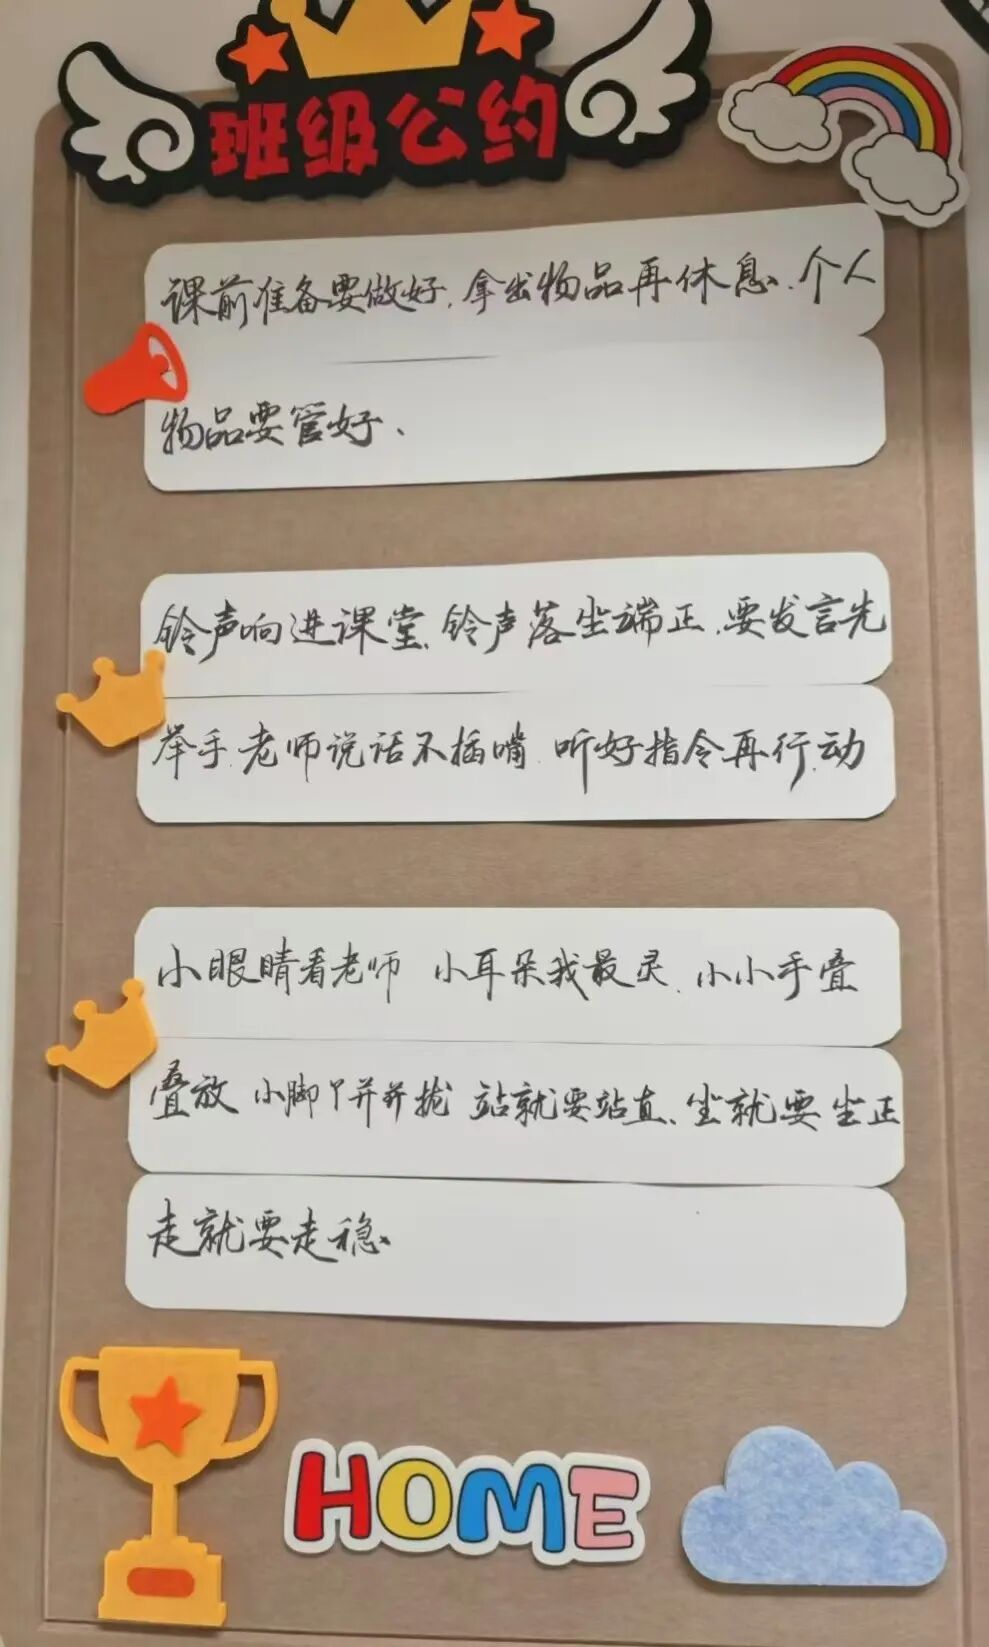 班级公约
课前准备要做好,拿出物品再休息、个人
物品要管好、
铃声响进课堂、铃声落坐端正、要发言先
举手、老师说话不插嘴、听好指令再行动
小眼睛看老师 小耳朵我最灵、小小手叠
叠放 小脚丫并并拢 站就要站直、坐就要坐正
走就要走稳
HOME